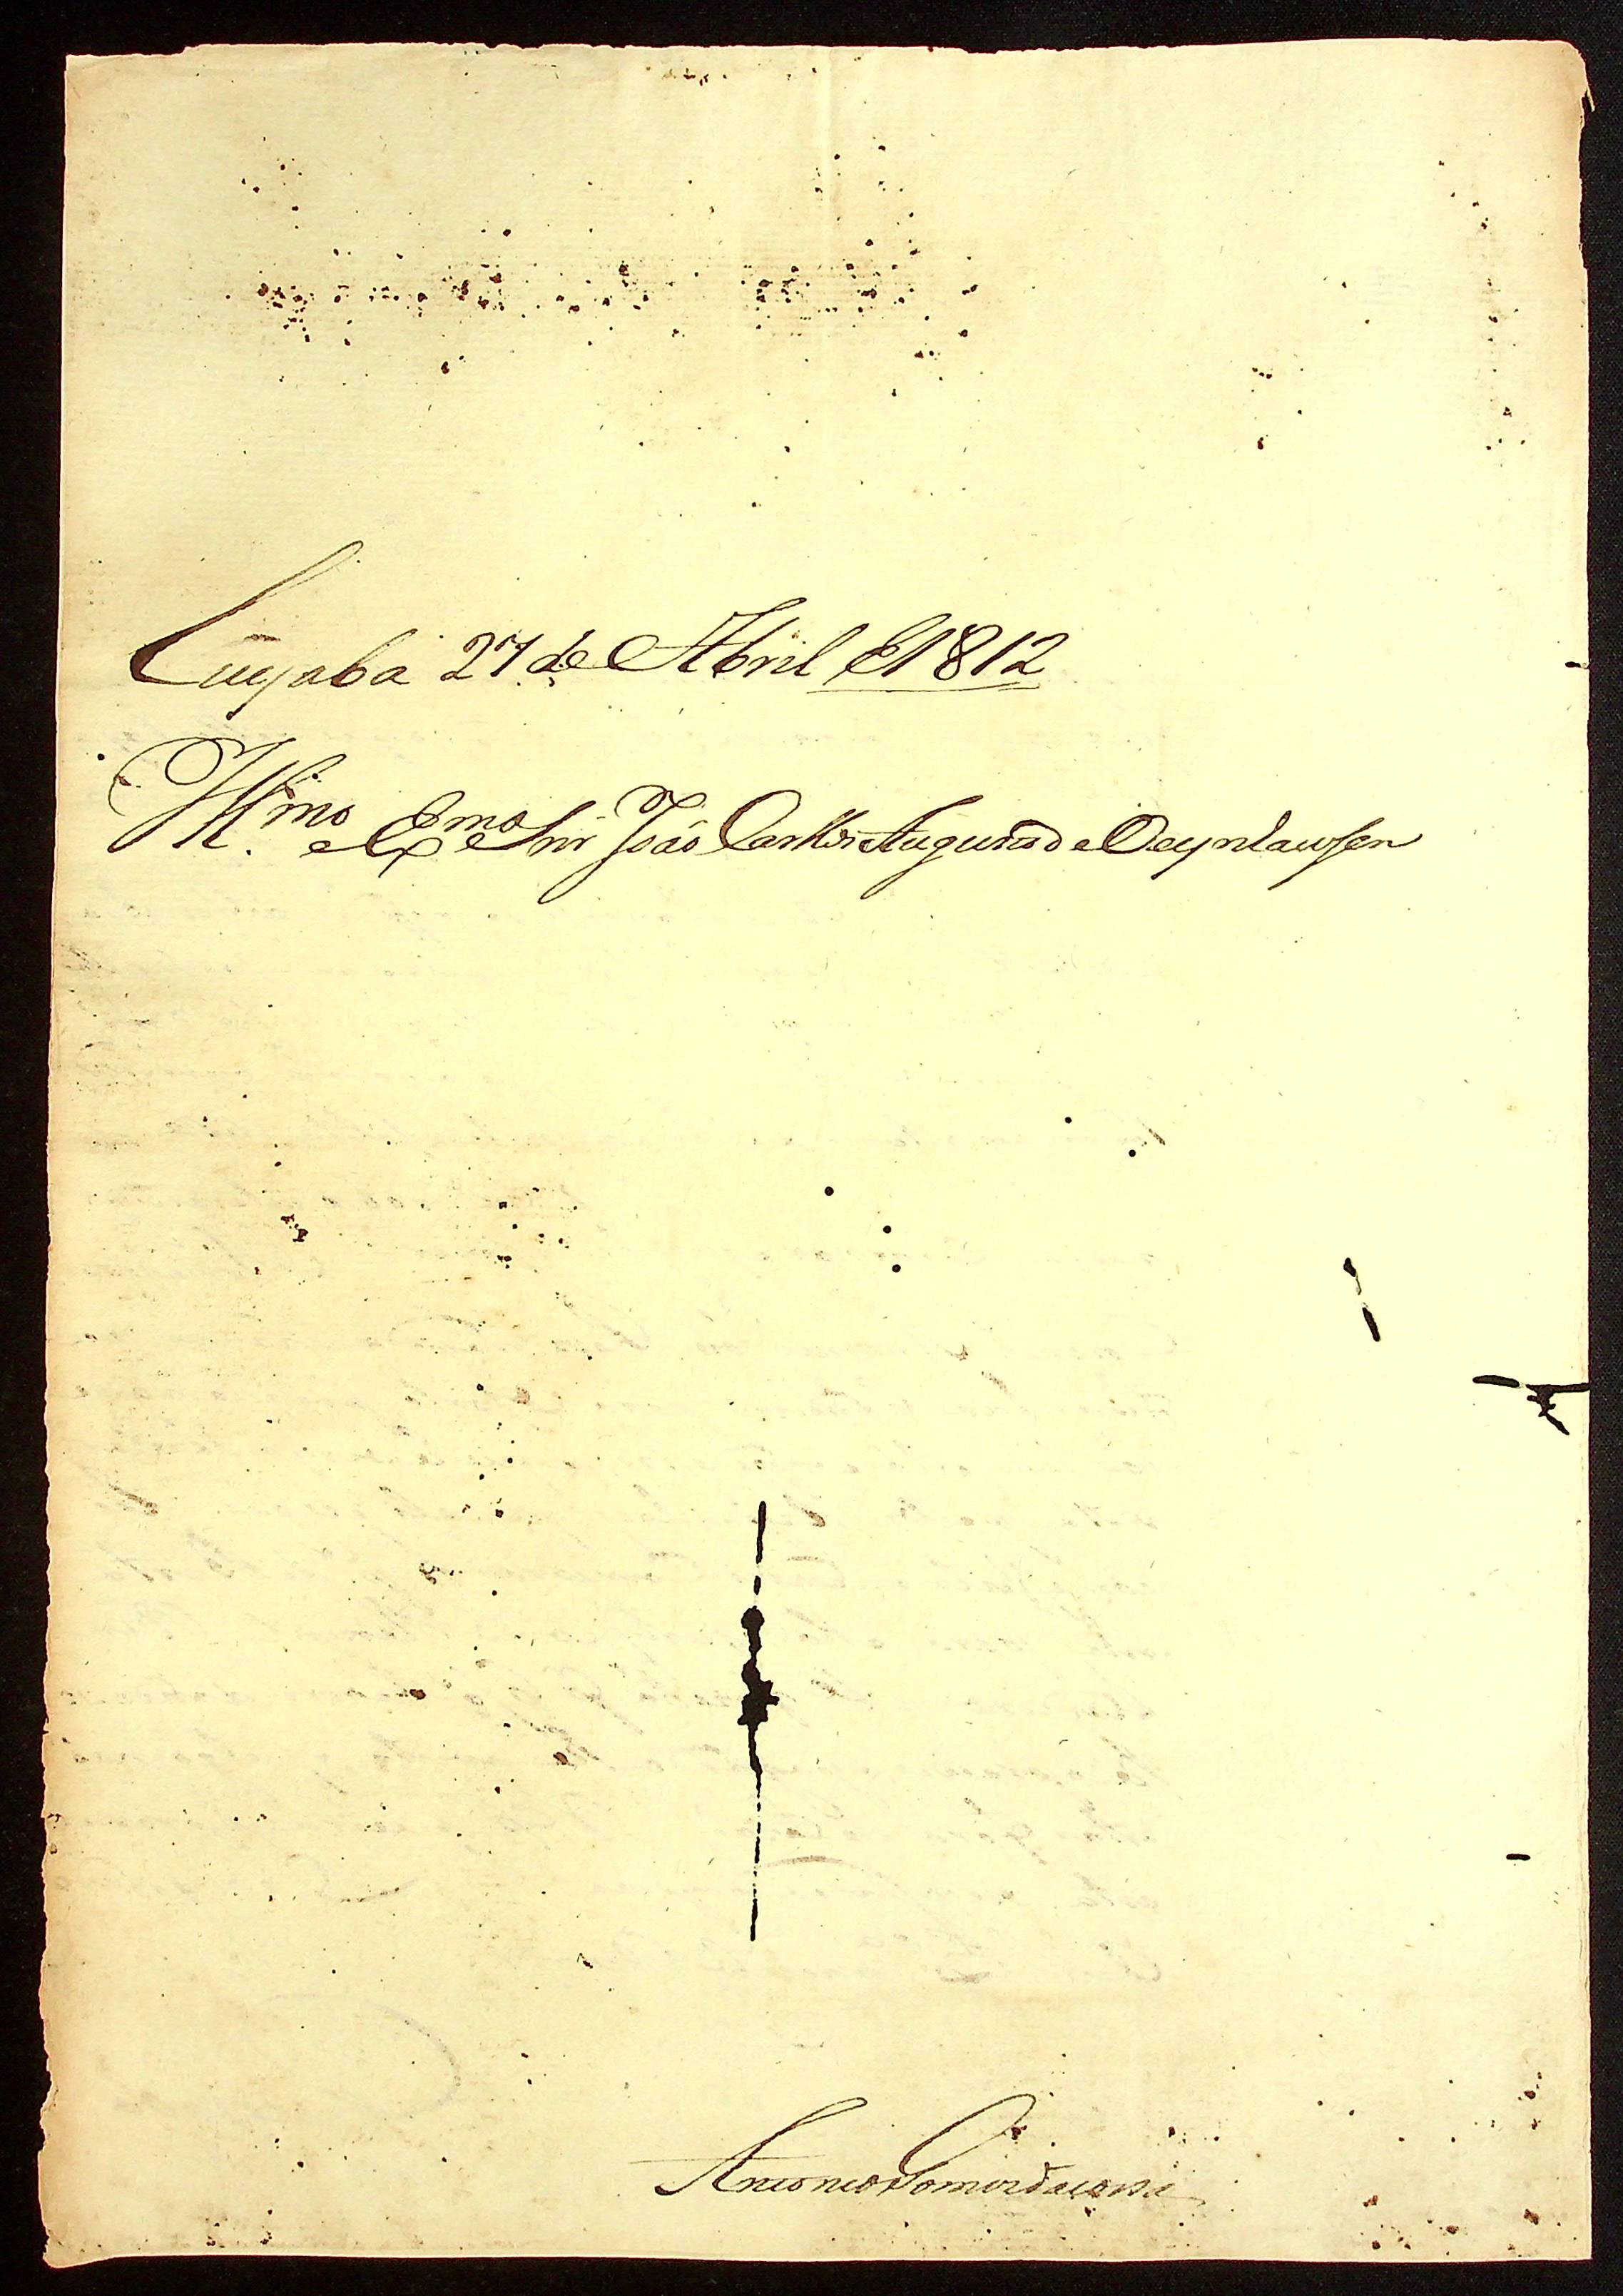 Cuyaba 27 de Abril de 1812
Illmo. e Exmo Snr João Carlos Augusto de Oeynhausen
Antonio